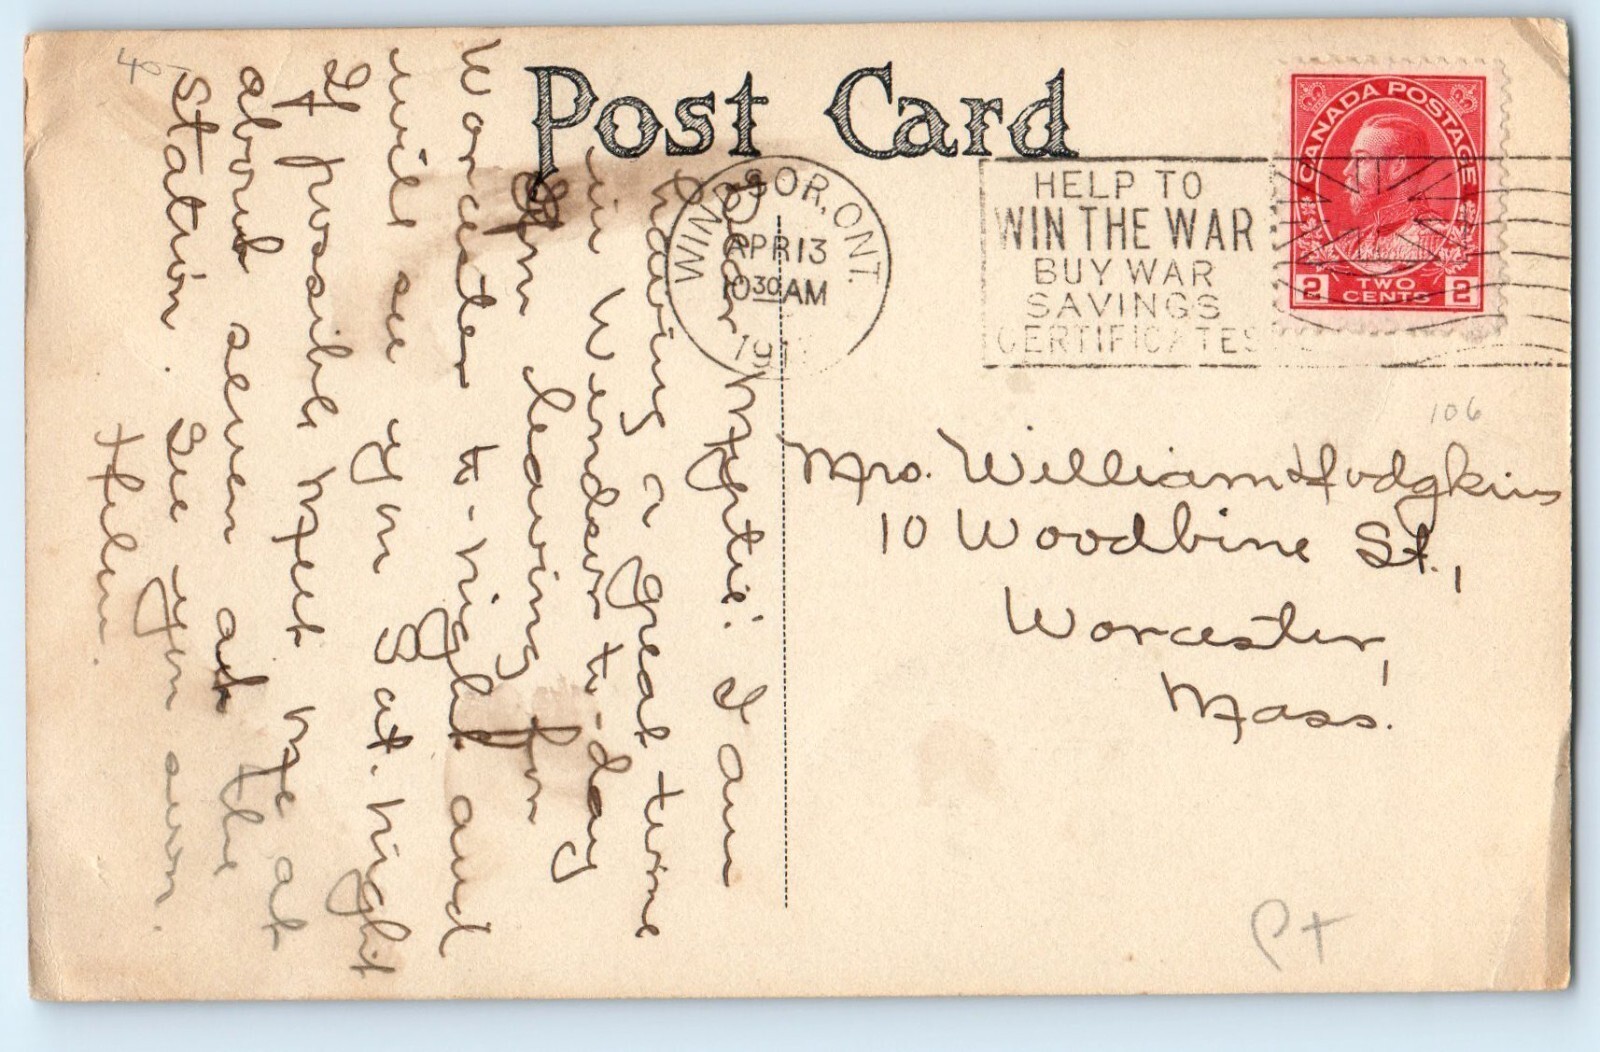 Post Card
WINDSOR, ONT.
APR 13
10 30 AM
191
HELP TO
WIN THE WAR
BUY WAR
SAVINGS
CERTIFICATES
CANADA POSTAGE
2 TWO CENTS 2
106
Mrs. William Hodgkins
10 Woodbine St.,
Worcester,
Mass.
Pt
Dear Myrtie: I am
having a great time
in Windsor to-day
Am leaving for
Worcester to-night and
will see you Sat. night
If possible meet me at
about seven at the
station. See you soon.
Helen.